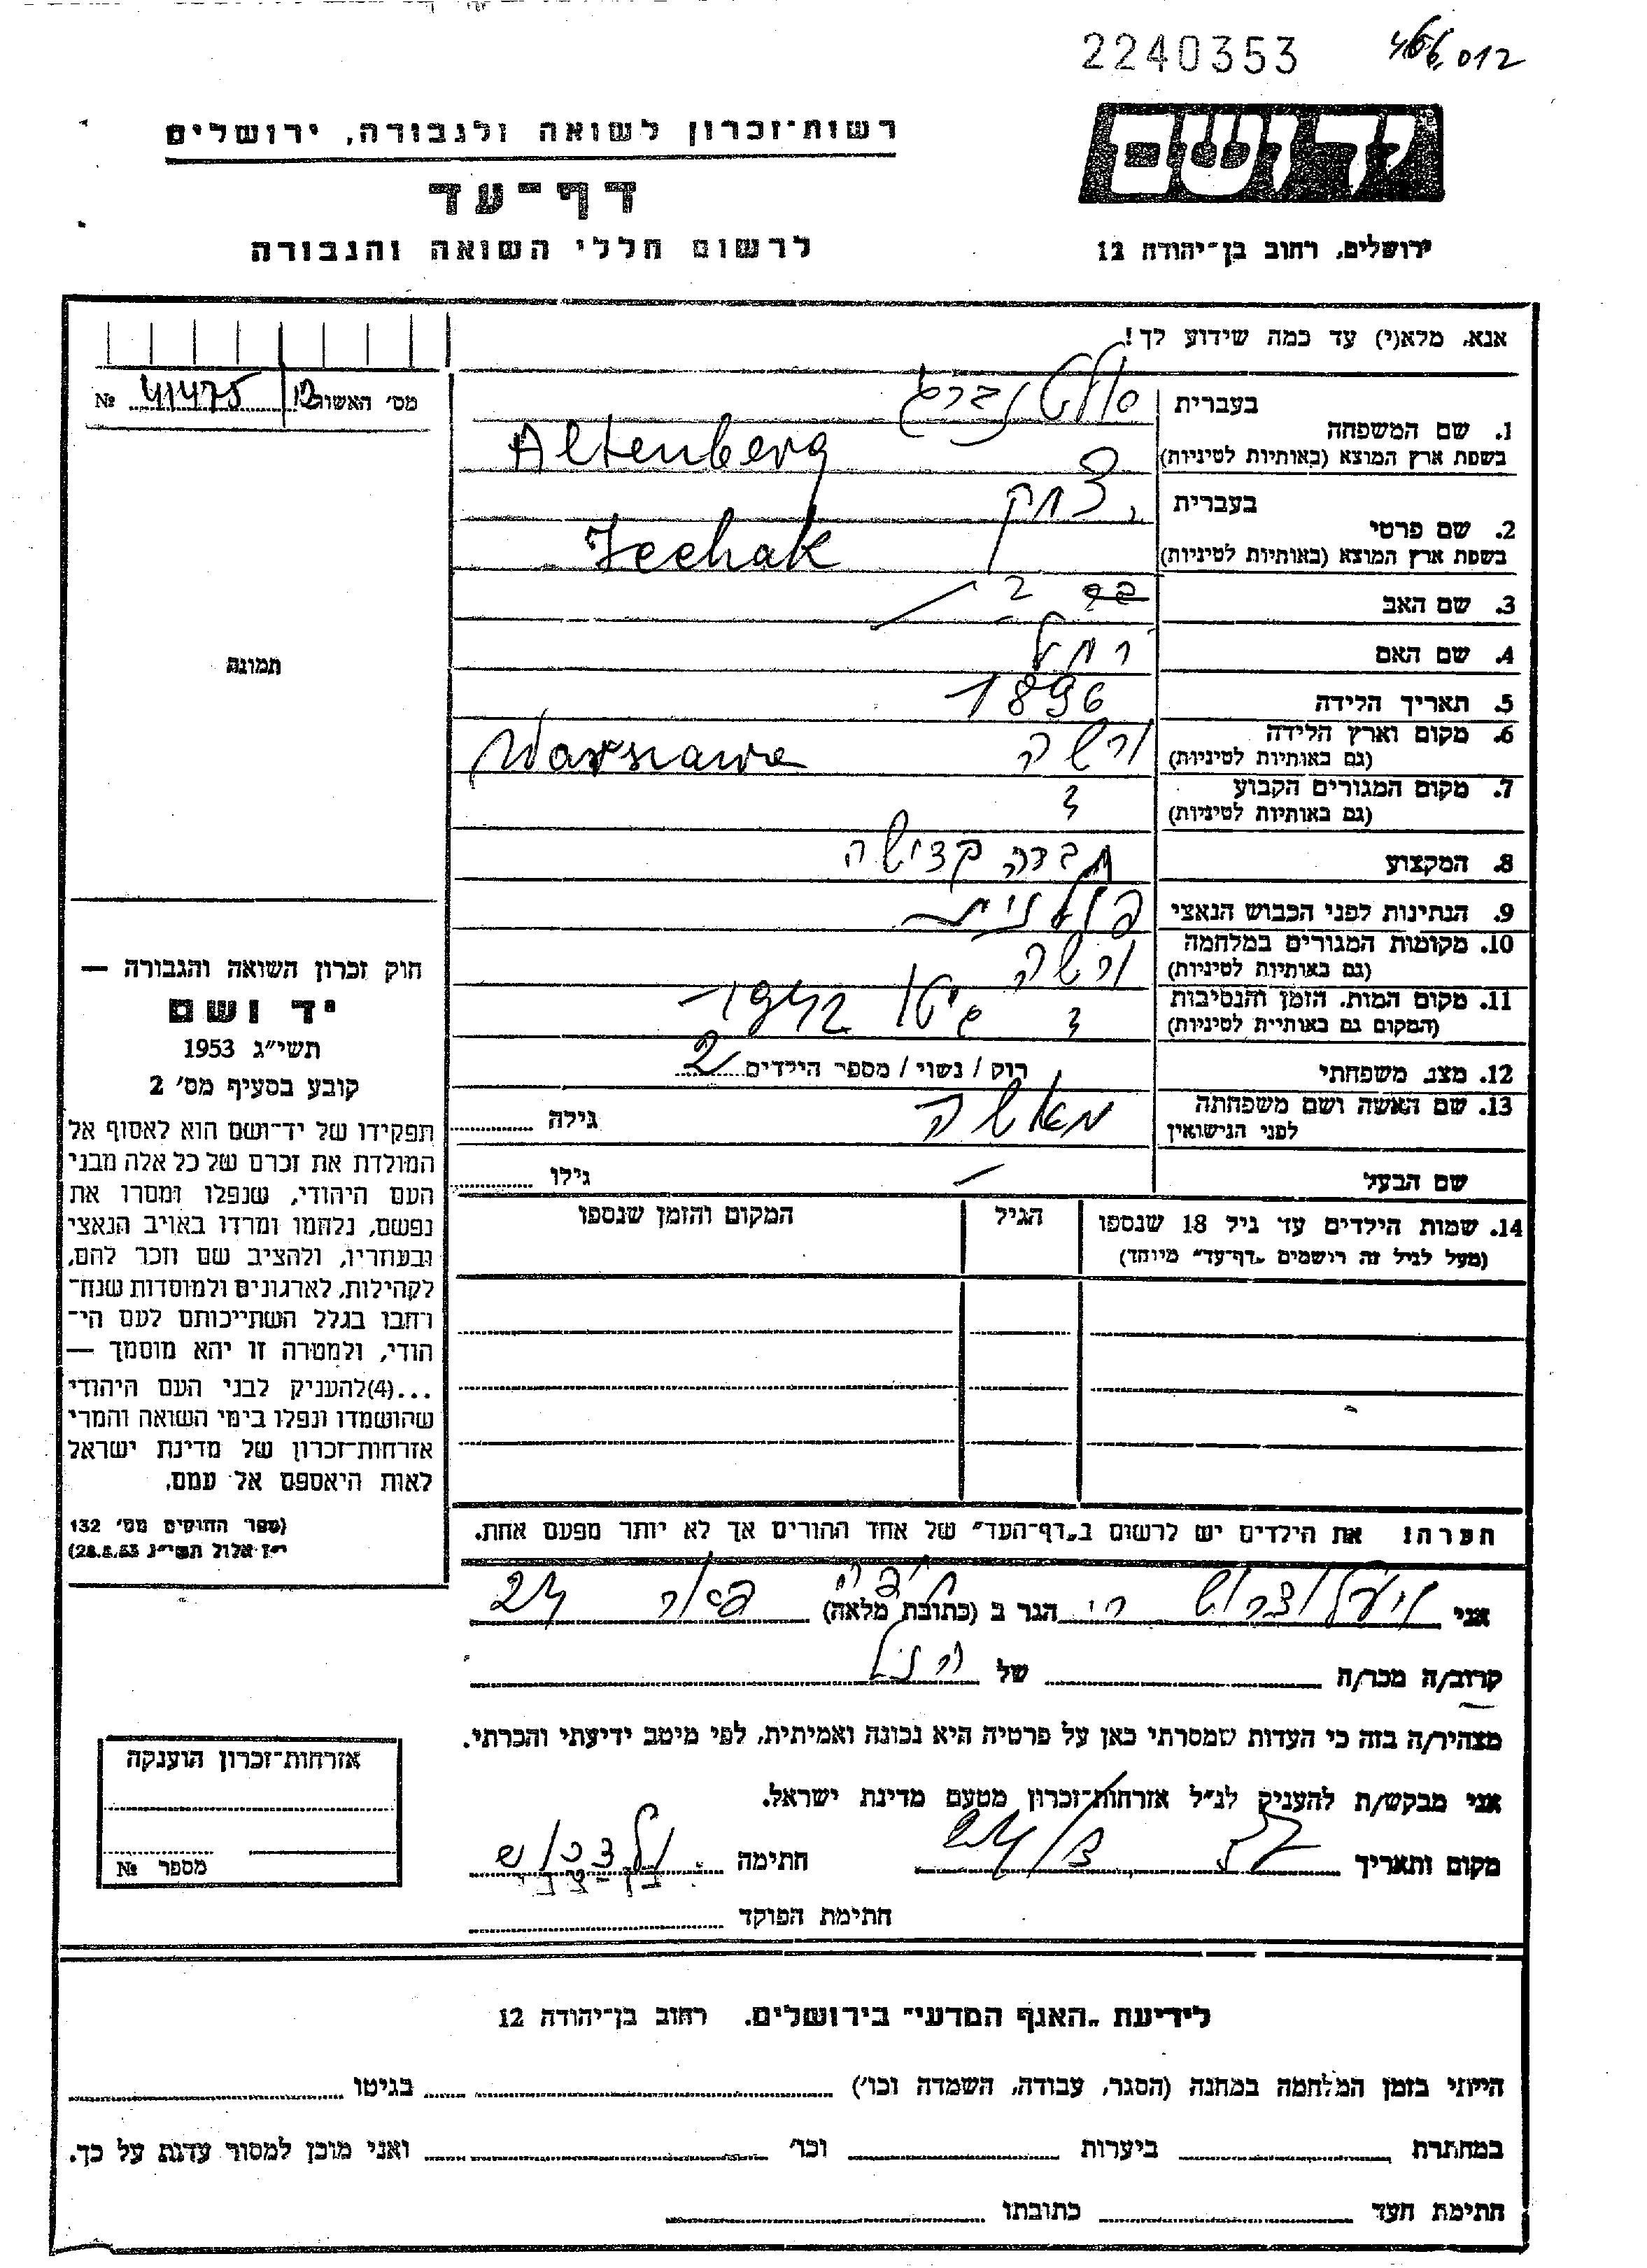 2240353
466,012
רשות־זכרון לשואה ולגבורה, ירושלים
יד ושם
דף־עד
לרשום חללי השואה והגבורה
ירושלים, רחוב בן־יהודה 12
אנא, מלא(י) עד כמה שידוע לך!
מס׳ האשוה 12 41475 №
1. שם המשפחה
בעברית אלטנברג
בשפת ארץ המוצא (באותיות לטיניות) Altenberg
2. שם פרטי
בעברית יצחק
בשפת ארץ המוצא (באותיות לטיניות) Icchak
3. שם האב
4. שם האם רחל
5. תאריך הלידה 1896
6. מקום וארץ הלידה ורשה Warszawa
(גם באותיות לטיניות)
7. מקום המגורים הקבוע
(גם באותיות לטיניות)
8. המקצוע חברה קדישה
9. הנתינות לפני הכבוש הנאצי פולנית
10. מקומות המגורים במלחמה ורשה
(גם באותיות לטיניות)
11. מקום המות, הזמן והנסיבות גיטו 1942
(המקום גם באותיות לטיניות)
12. מצב משפחתי רוק / נשוי / מספר הילדים 2
13. שם האשה ושם משפחתה מאשה גילה
לפני הנישואין
שם הבעל גילו
14. שמות הילדים עד גיל 18 שנספו הגיל המקום והזמן שנספו
(מעל לגיל זה רושמים „דף־עד״ מיוחד)
הערה: את הילדים יש לרשום ב„דף־העד״ של אחד ההורים אך לא יותר מפעם אחת.
אני הגר ב (כתובת מלאה) 24
קרוב/ה מכר/ה של הנ״ל
מצהיר/ה בזה כי העדות שמסרתי כאן על פרטיה היא נכונה ואמיתית, לפי מיטב ידיעתי והכרתי.
אני מבקש/ת להעניק לנ״ל אזרחות־זכרון מטעם מדינת ישראל.
מקום ותאריך חתימה
חתימת הפוקד
תמונה
חוק זכרון השואה והגבורה —
יד ושם
תשי״ג 1953
קובע בסעיף מס׳ 2
תפקידו של יד־ושם הוא לאסוף אל
המולדת את זכרם של כל אלה מבני
העם היהודי, שנפלו ומסרו את
נפשם, נלחמו ומרדו באויב הנאצי
ובעוזריו, ולהציב שם וזכר להם,
לקהילות, לארגונים ולמוסדות שנח־
רחבו בגלל השתייכותם לעם הי־
הודי, ולמטרה זו יהא מוסמך —
...(4)להעניק לבני העם היהודי
שהושמדו ונפלו בימי השואה והמרי
אזרחות־זכרון של מדינת ישראל
לאות היאספם אל עמם.
(ספר החוקים מס׳ 132
י״ז אלול תשי״ג 28.8.53)
אזרחות־זכרון הוענקה
מספר №
לידיעת „האגף המדעי״ בירושלים, רחוב בן־יהודה 12
הייתי בזמן המלחמה במחנה (הסגר, עבודה, השמדה וכו׳) בגיטו
במחתרת ביערות וכו׳ ואני מוכן למסור עדות על כך.
חתימת העד כתובתו